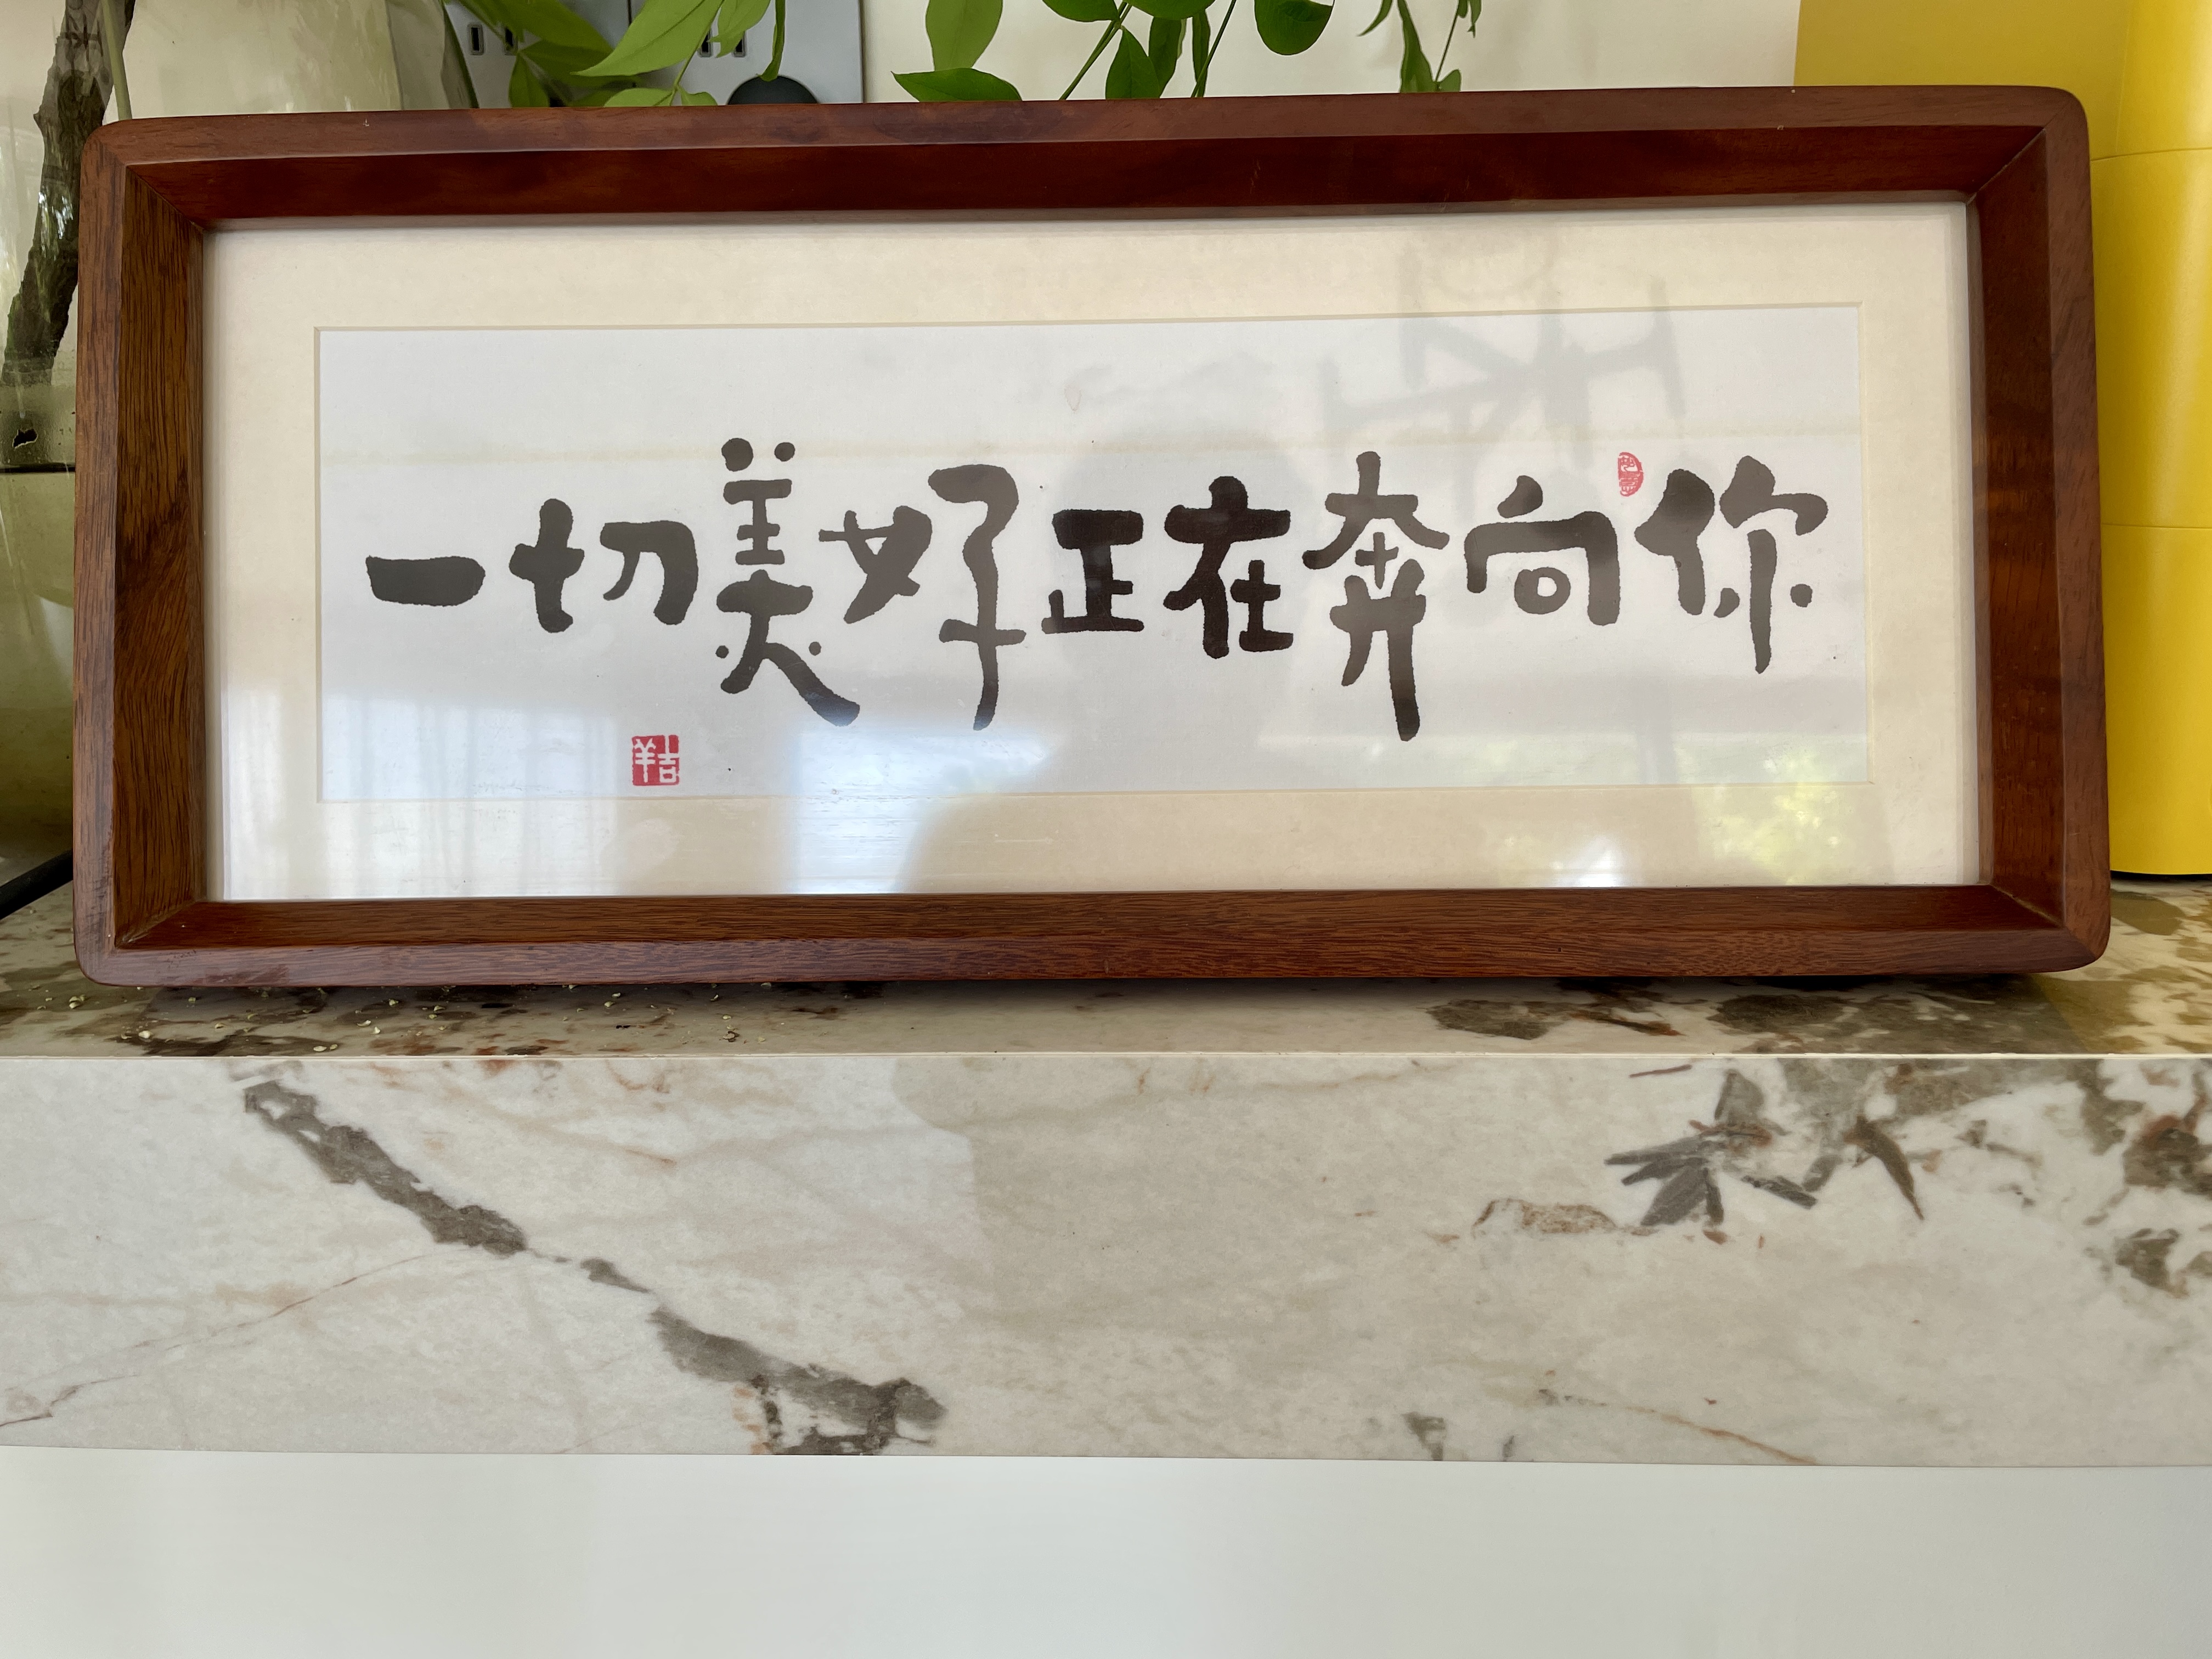 一切美好正在奔向你
吉羊